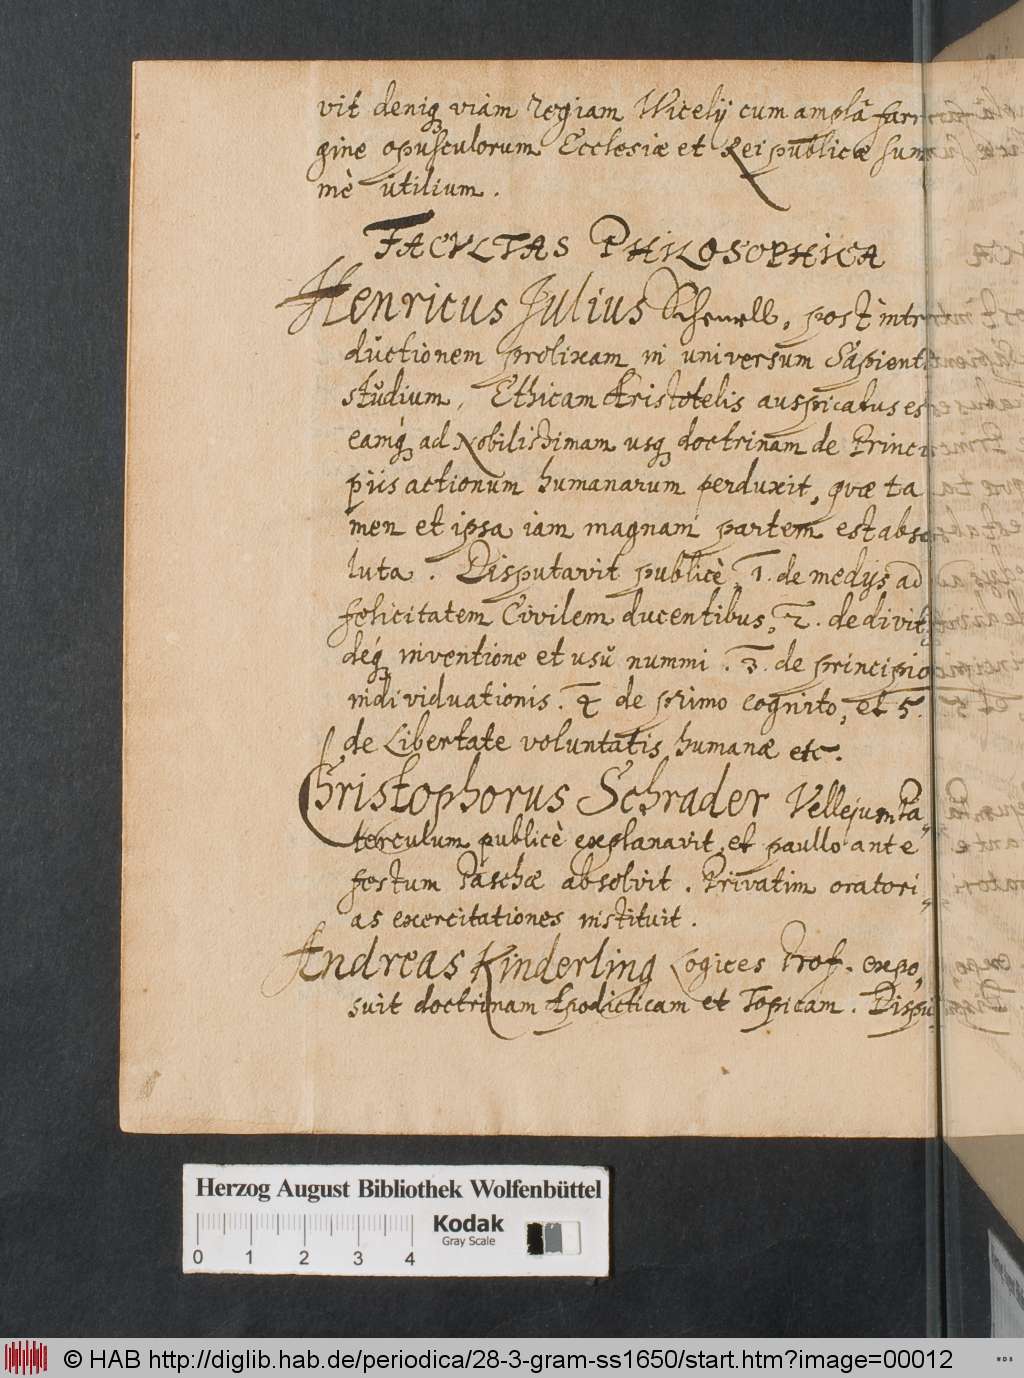 vit deniq; viam regiam Wicelij cum amplâ farr
gine opusculorum Ecclesiæ et Reipublicæ sum
mè utilium.
FACVLTAS PHILOSOPHICA
Henricus Julius Scheurll, post intr
ductionem prolixam in universum Sapient
studium, Ethicam Aristotelis auspicatus es
eamq́; ad Nobilissimam usq; doctrinam de Princi
piis actionum humanarum perduxit, quæ ta
men et ipsa iam magnam partem est abso
luta. Disputavit publicè, 1. de medijs ad
felicitatem Civilem ducentibus, 2. de divit,
deq́; inventione et usu nummi. 3. de principio
individuationis. 4 de primo cognito, et 5.
de Libertate voluntatis humanæ etc.
Christophorus Schrader Vellejum Pa-
terculum publicè explanavit, et paullo ante
festum Paschæ absolvit. Privatim oratori-
as exercitationes instituit.
Andreas Kinderling Logices Prof. expo,
suit doctrinam Apodicticam et Topicam. Dispu
Herzog August Bibliothek Wolfenbüttel
Kodak
Gray Scale
0 1 2 3 4
© HAB http://diglib.hab.de/periodica/28-3-gram-ss1650/start.htm?image=00012